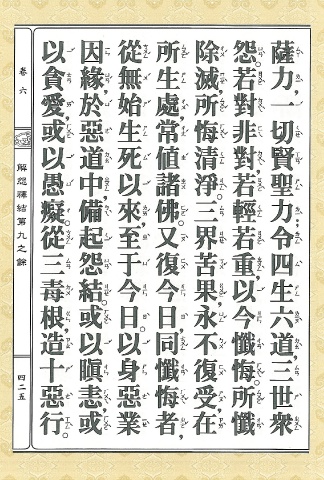 薩力，一切賢聖力，令四生六道，三世眾
怨，若對非對，若輕若重，以今懺悔，所懺
除滅，所悔清淨。三界苦果，永不復受，在
所生處，常值諸佛。又復今日，同懺悔者，
從無始生死以來，至于今日，以身惡業
因緣，於惡道中，備起怨結。或以瞋恚，或
以貪愛，或以愚癡。從三毒根，造十惡行。
卷六
解怨釋結第九之餘
四二五